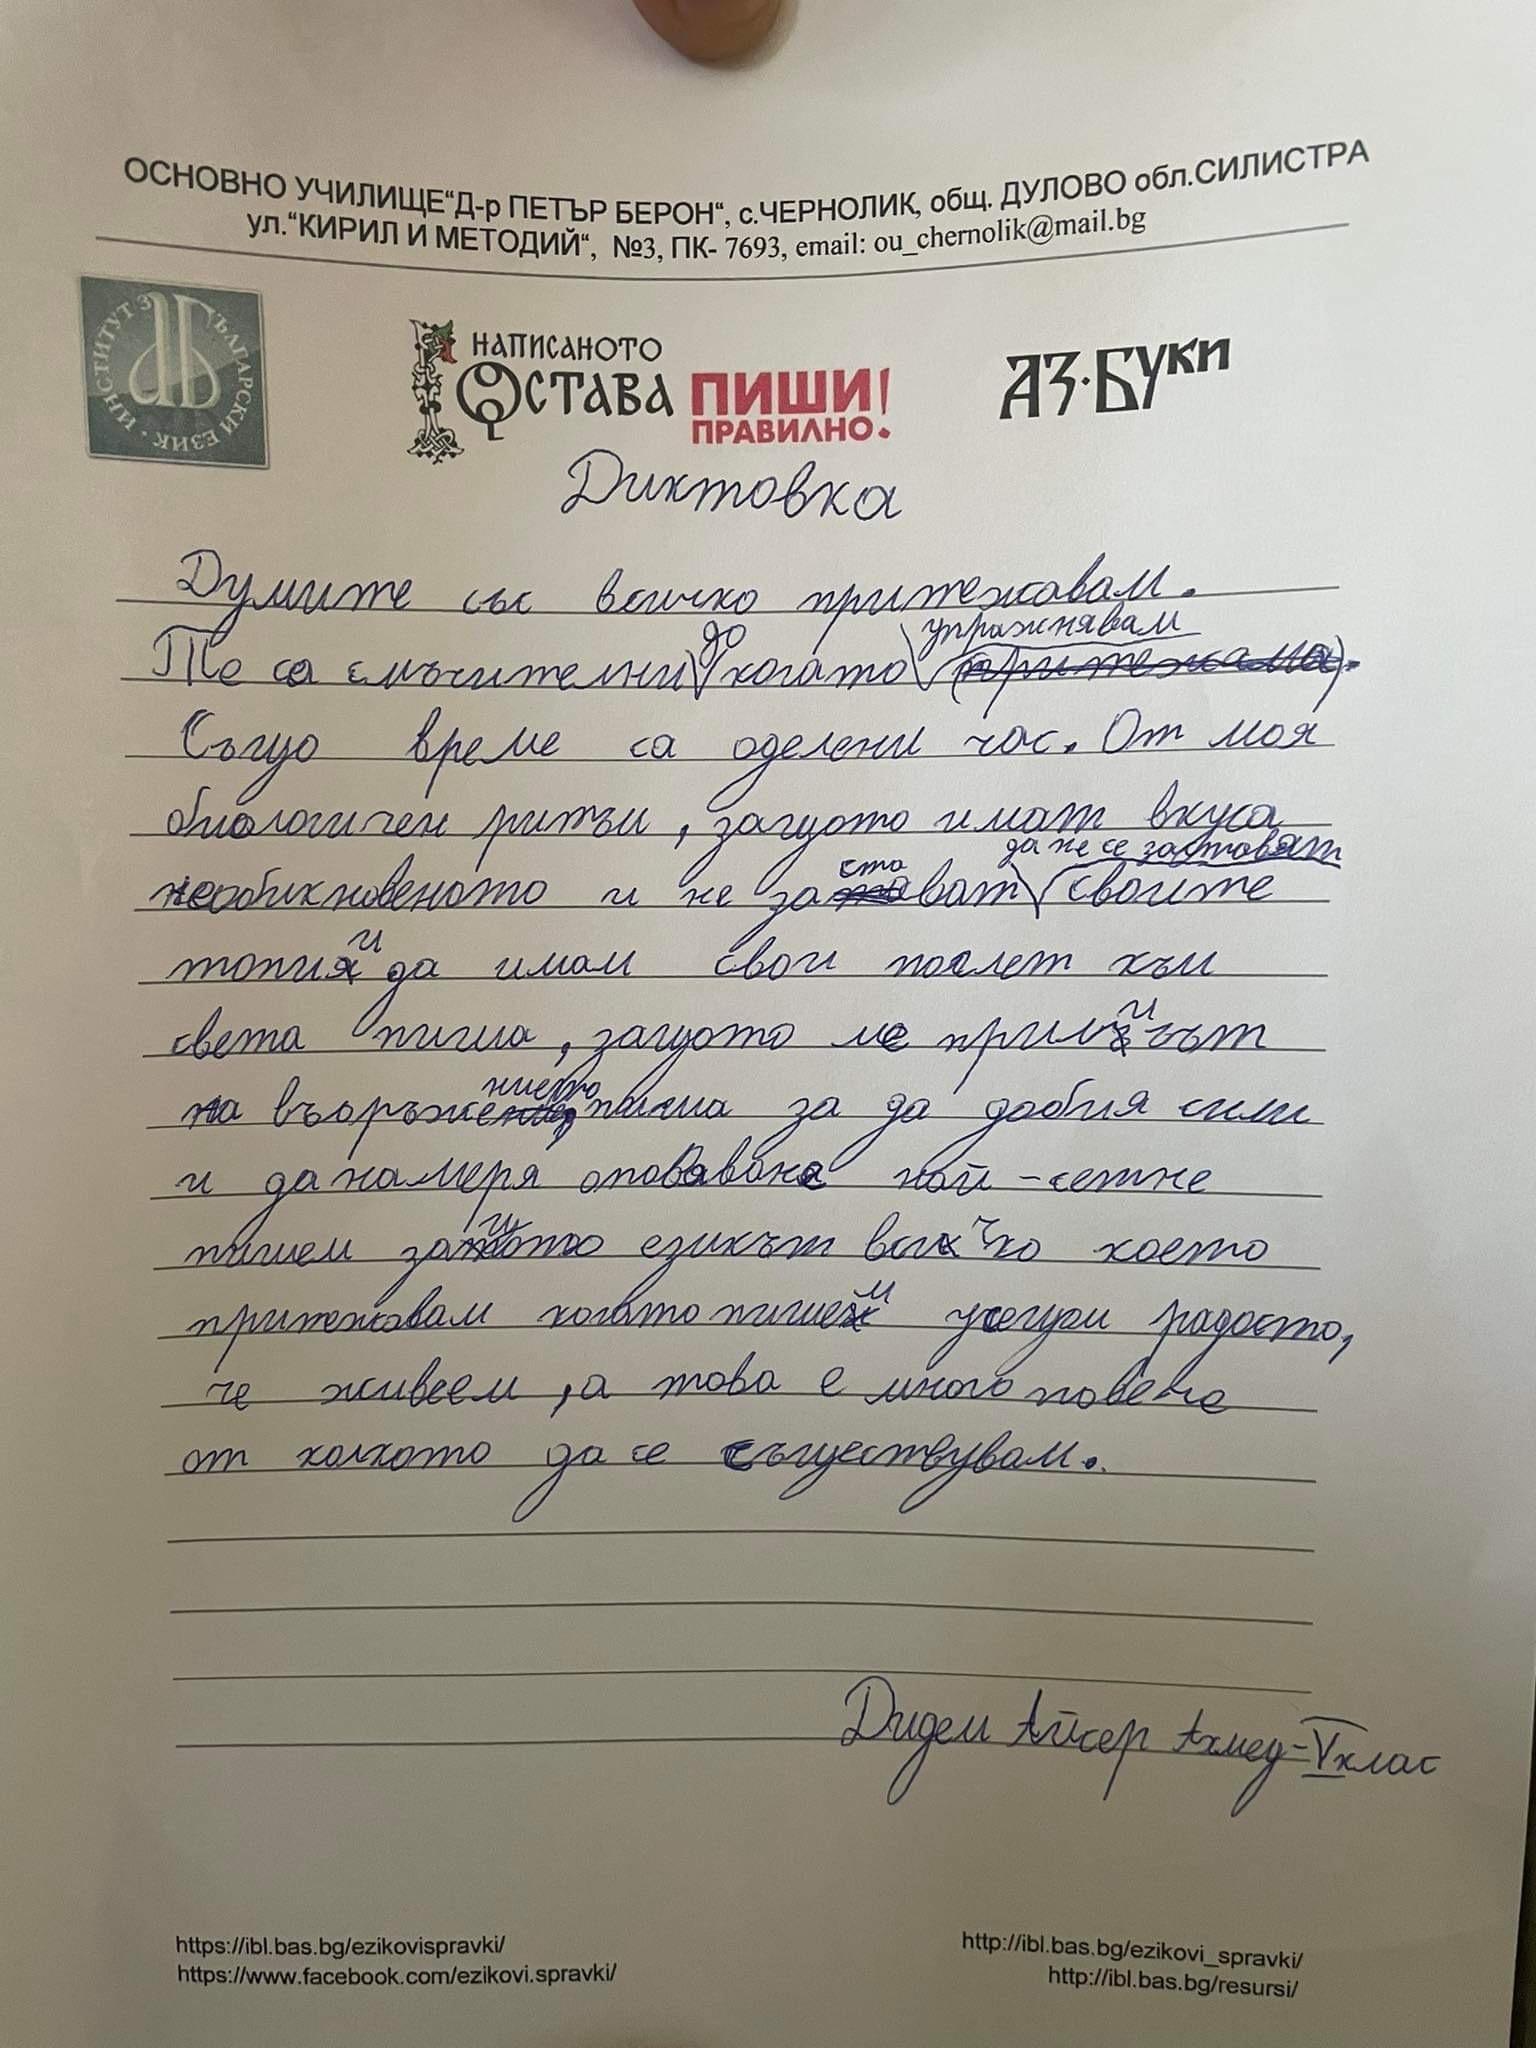 ОСНОВНО УЧИЛИЩЕ“Д-р ПЕТЪР БЕРОН“, с.ЧЕРНОЛИК, общ. ДУЛОВО обл.СИЛИСТРА
ул.“КИРИЛ И МЕТОДИЙ“, №3, ПК- 7693, email: ou_chernolik@mail.bg
ИНСТИТУТ ЗА БЪЛГАРСКИ ЕЗИК
НАПИСАНОТО
ОСТАВА
ПИШИ!
ПРАВИЛНО.
АЗ·БУКИ
Диктовка
Думите със всичко притежавам.
до упражнявам
Те са смъчителни когато
Също време са оделени час. От моя
биологичен ритъм, защото имат вкуса
да не се
необикновеното и не застават своите
топии да имам свои послет към
света пиша, защото ме примичът
на въоръжението пиша за да добия сили
и да намеря най-сетне
пишем защото езикът всичко което
притежавам когато пишем усещи радосто,
че живеем, а това е много повече
от колкото да се съществувам.
Дидем Айсер Ахмед-V клас
https://ibl.bas.bg/ezikovispravki/
https://www.facebook.com/ezikovi.spravki/
http://ibl.bas.bg/ezikovi_spravki/
http://ibl.bas.bg/resursi/